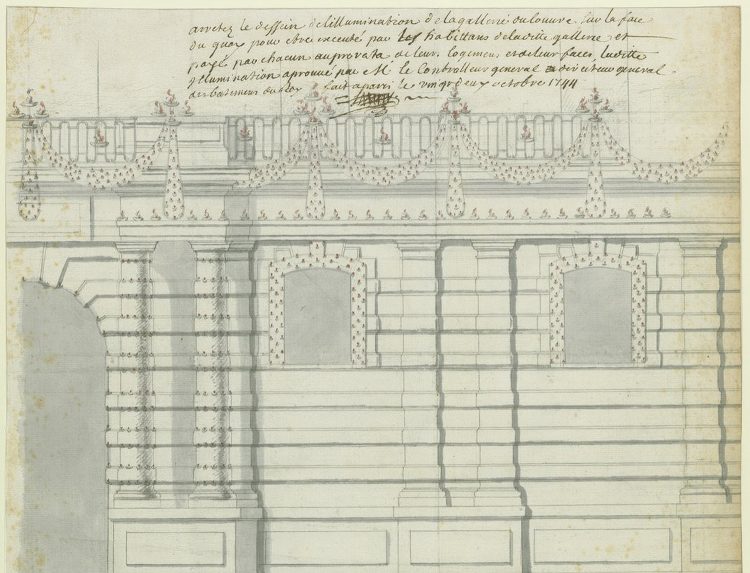 arretez le dessein de lillumination de la gallerie du louvre sur la face
du quay pour etre executé par les habittans de laditte gallerie et
payé par chacun au prorata de leurs logemens et de leur faces, laditte
Illumination aprouvé par M. le Controlleur general directeur general
des batimens du Roy fait a paris le vingt deux octobre 1744